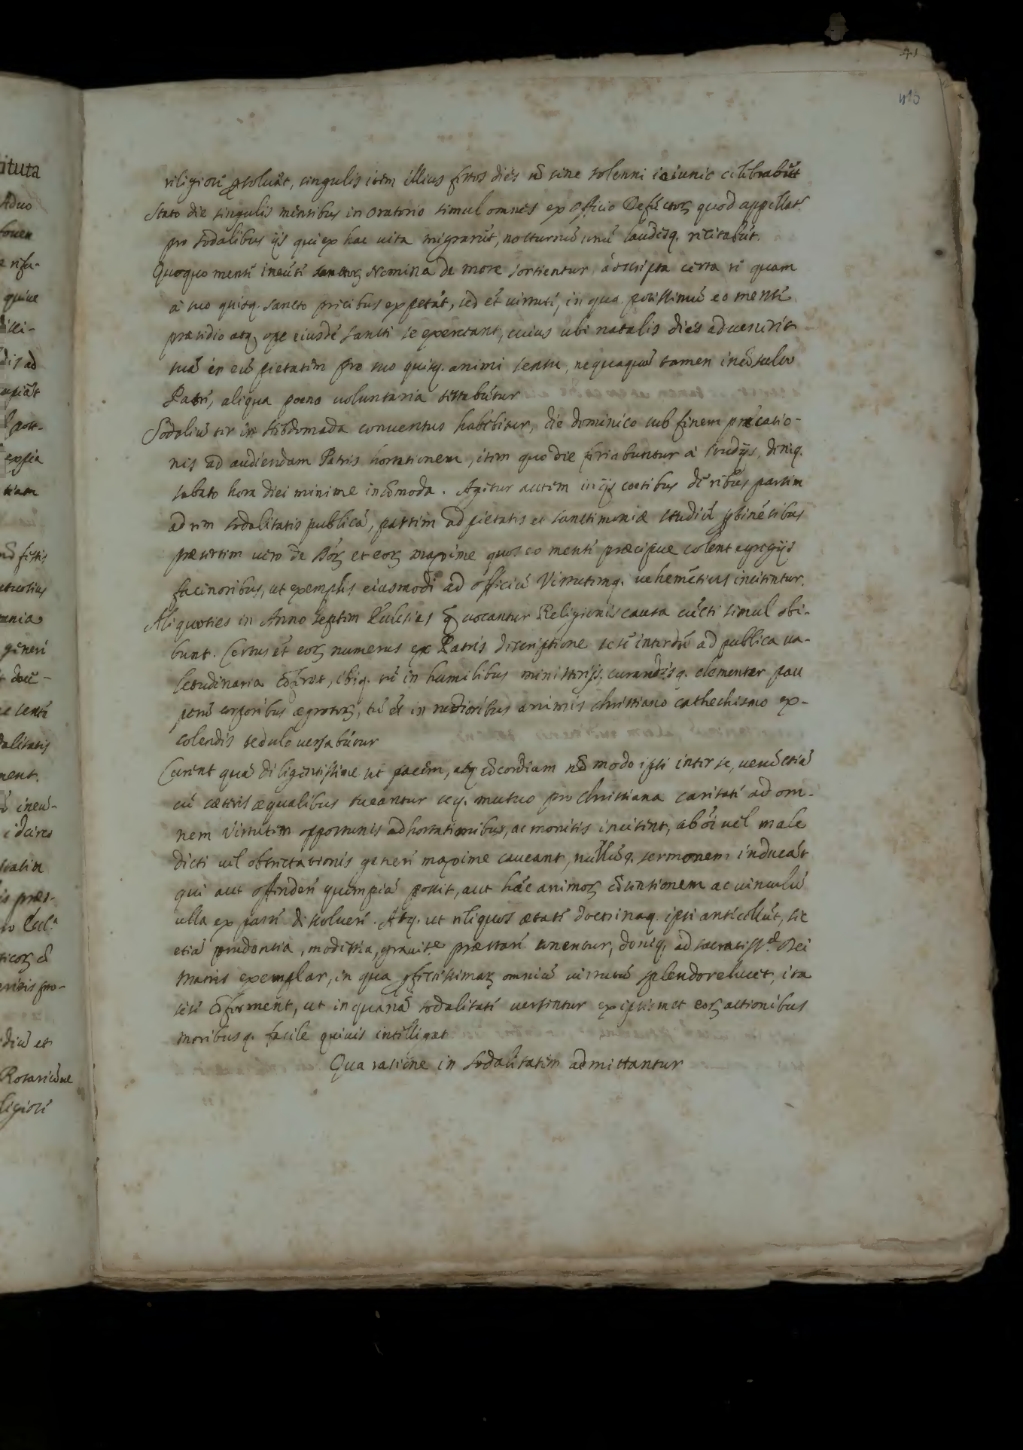 41
410
religiosè persoluāt, singulis item illius festos dies nō sine solenni ieiunio celebrabūt
Stato die singulis mensibus in oratorio simul omnes ex officio Defūctorū quod appellāt
pro sodalibus ijs qui ex hac uita migrarūt, nocturnū unū laudesq. recitabūt.
Quoquo mense ineūte sanctorū Nomina de more sortientur, adscripta certa re quam
a suo quisq. sancto precibus expetāt, sed et uirtute, in qua potissimū eo mense
praesidio atq. ope eiusdē sancti se exerceant, cuius ubi natalis dies aduenerit
suā in eū pietatem pro suo quisq. animi sensu, nequaquā tamen incōsulto
Patre, aliqua poena uoluntaria testabūtur
Sodaliū ter in hebdomada conuentus habebitur, die dominico sub finem precatio-
nis ad audiendam Patris hortationem, item quo die feriabuntur a studijs, deniq.
sabato hora diei minime incōmoda. Agitur autem in ijs coetibus de rebus partim
ad rem sodalitatis publicā, partim ad pietatis et sanctimoniae studiū pertinētibus
praesertim uero de eorū maxime quos eo mense praecipue colent egregijs
facinoribus, ut exemplis eiusmodi ad officiū Virtutemq. uehemētius incitentur.
Aliquoties in Anno septem Eclesias quae uocantur Religionis causa cūcti simul obi-
bunt. Certus et eorū numerus ex Patris discriptione sese interdū ad publica ua-
letudinaria cōferet, ibiq. cū in humilibus ministerijs, curandisq. clementer pau
perū corporibus aegrotis, tū et in rudioribus animis christiano cathechismo ex-
colendis sedulo uersabūtur
Curent quā diligentissime ut pacem, atq. cōcordiam nō modo ipsi inter se, uerū etiā
cū caeteris aequalibus tueantur seq. mutuo pro christiana caritate ad om-
nem Virtutem opportunis adhortationibus, ac monitis incitent, ab oī uel male
dicti uel obtrectationis genere maxime caueant, nullūq. sermonem inducāt
qui aut offendere quempiā possit, aut hāc animorū cōiunctionem ac uinculū
ulla ex parte dissoluere. Atq. ut reliquos aetate doctrinaq. ipsi antecellūt, sic
etiā prudentia, modestia, grauitate praestare tenentur, deniq. ad sacratiss. Dei
Matris exemplar, in qua perfectissimarū omniū uirtutū splendor elucet, ita
sese cōforment, ut in quanā sodalitate uersentur ex ipsismet eorū actionibus
moribusq. facile quiuis intelligat
Qua ratione in sodalitatem admittantur